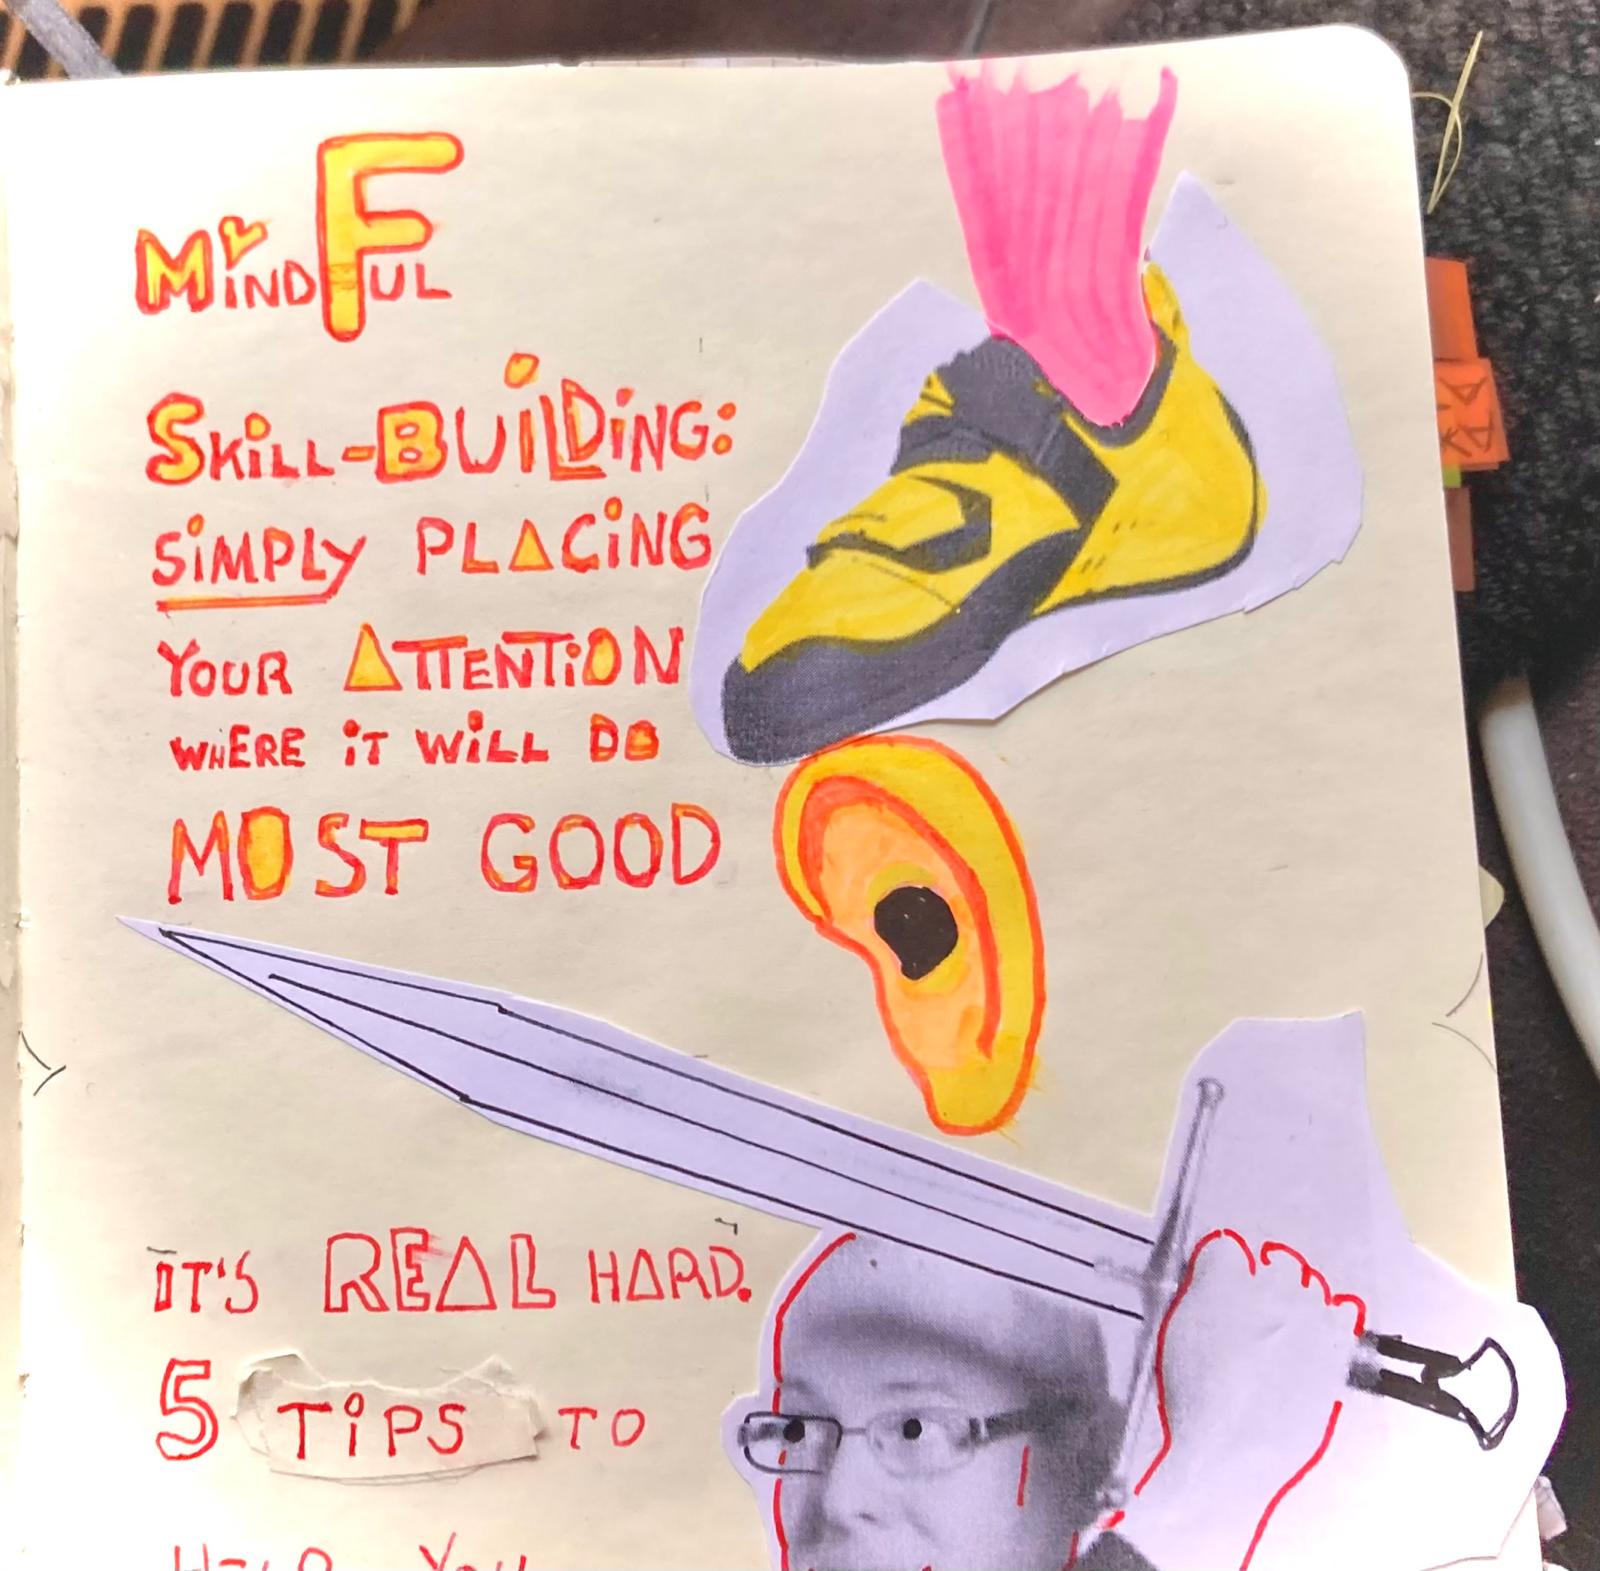 MiNDFUL
SKiLL-BUiLDiNG:
SiMPLY PLACiNG
YOUR ATTENTiON
WHERE iT WiLL DO
MOST GOOD
IT'S REAL HARD.
5 TiPS TO
HELP YOU